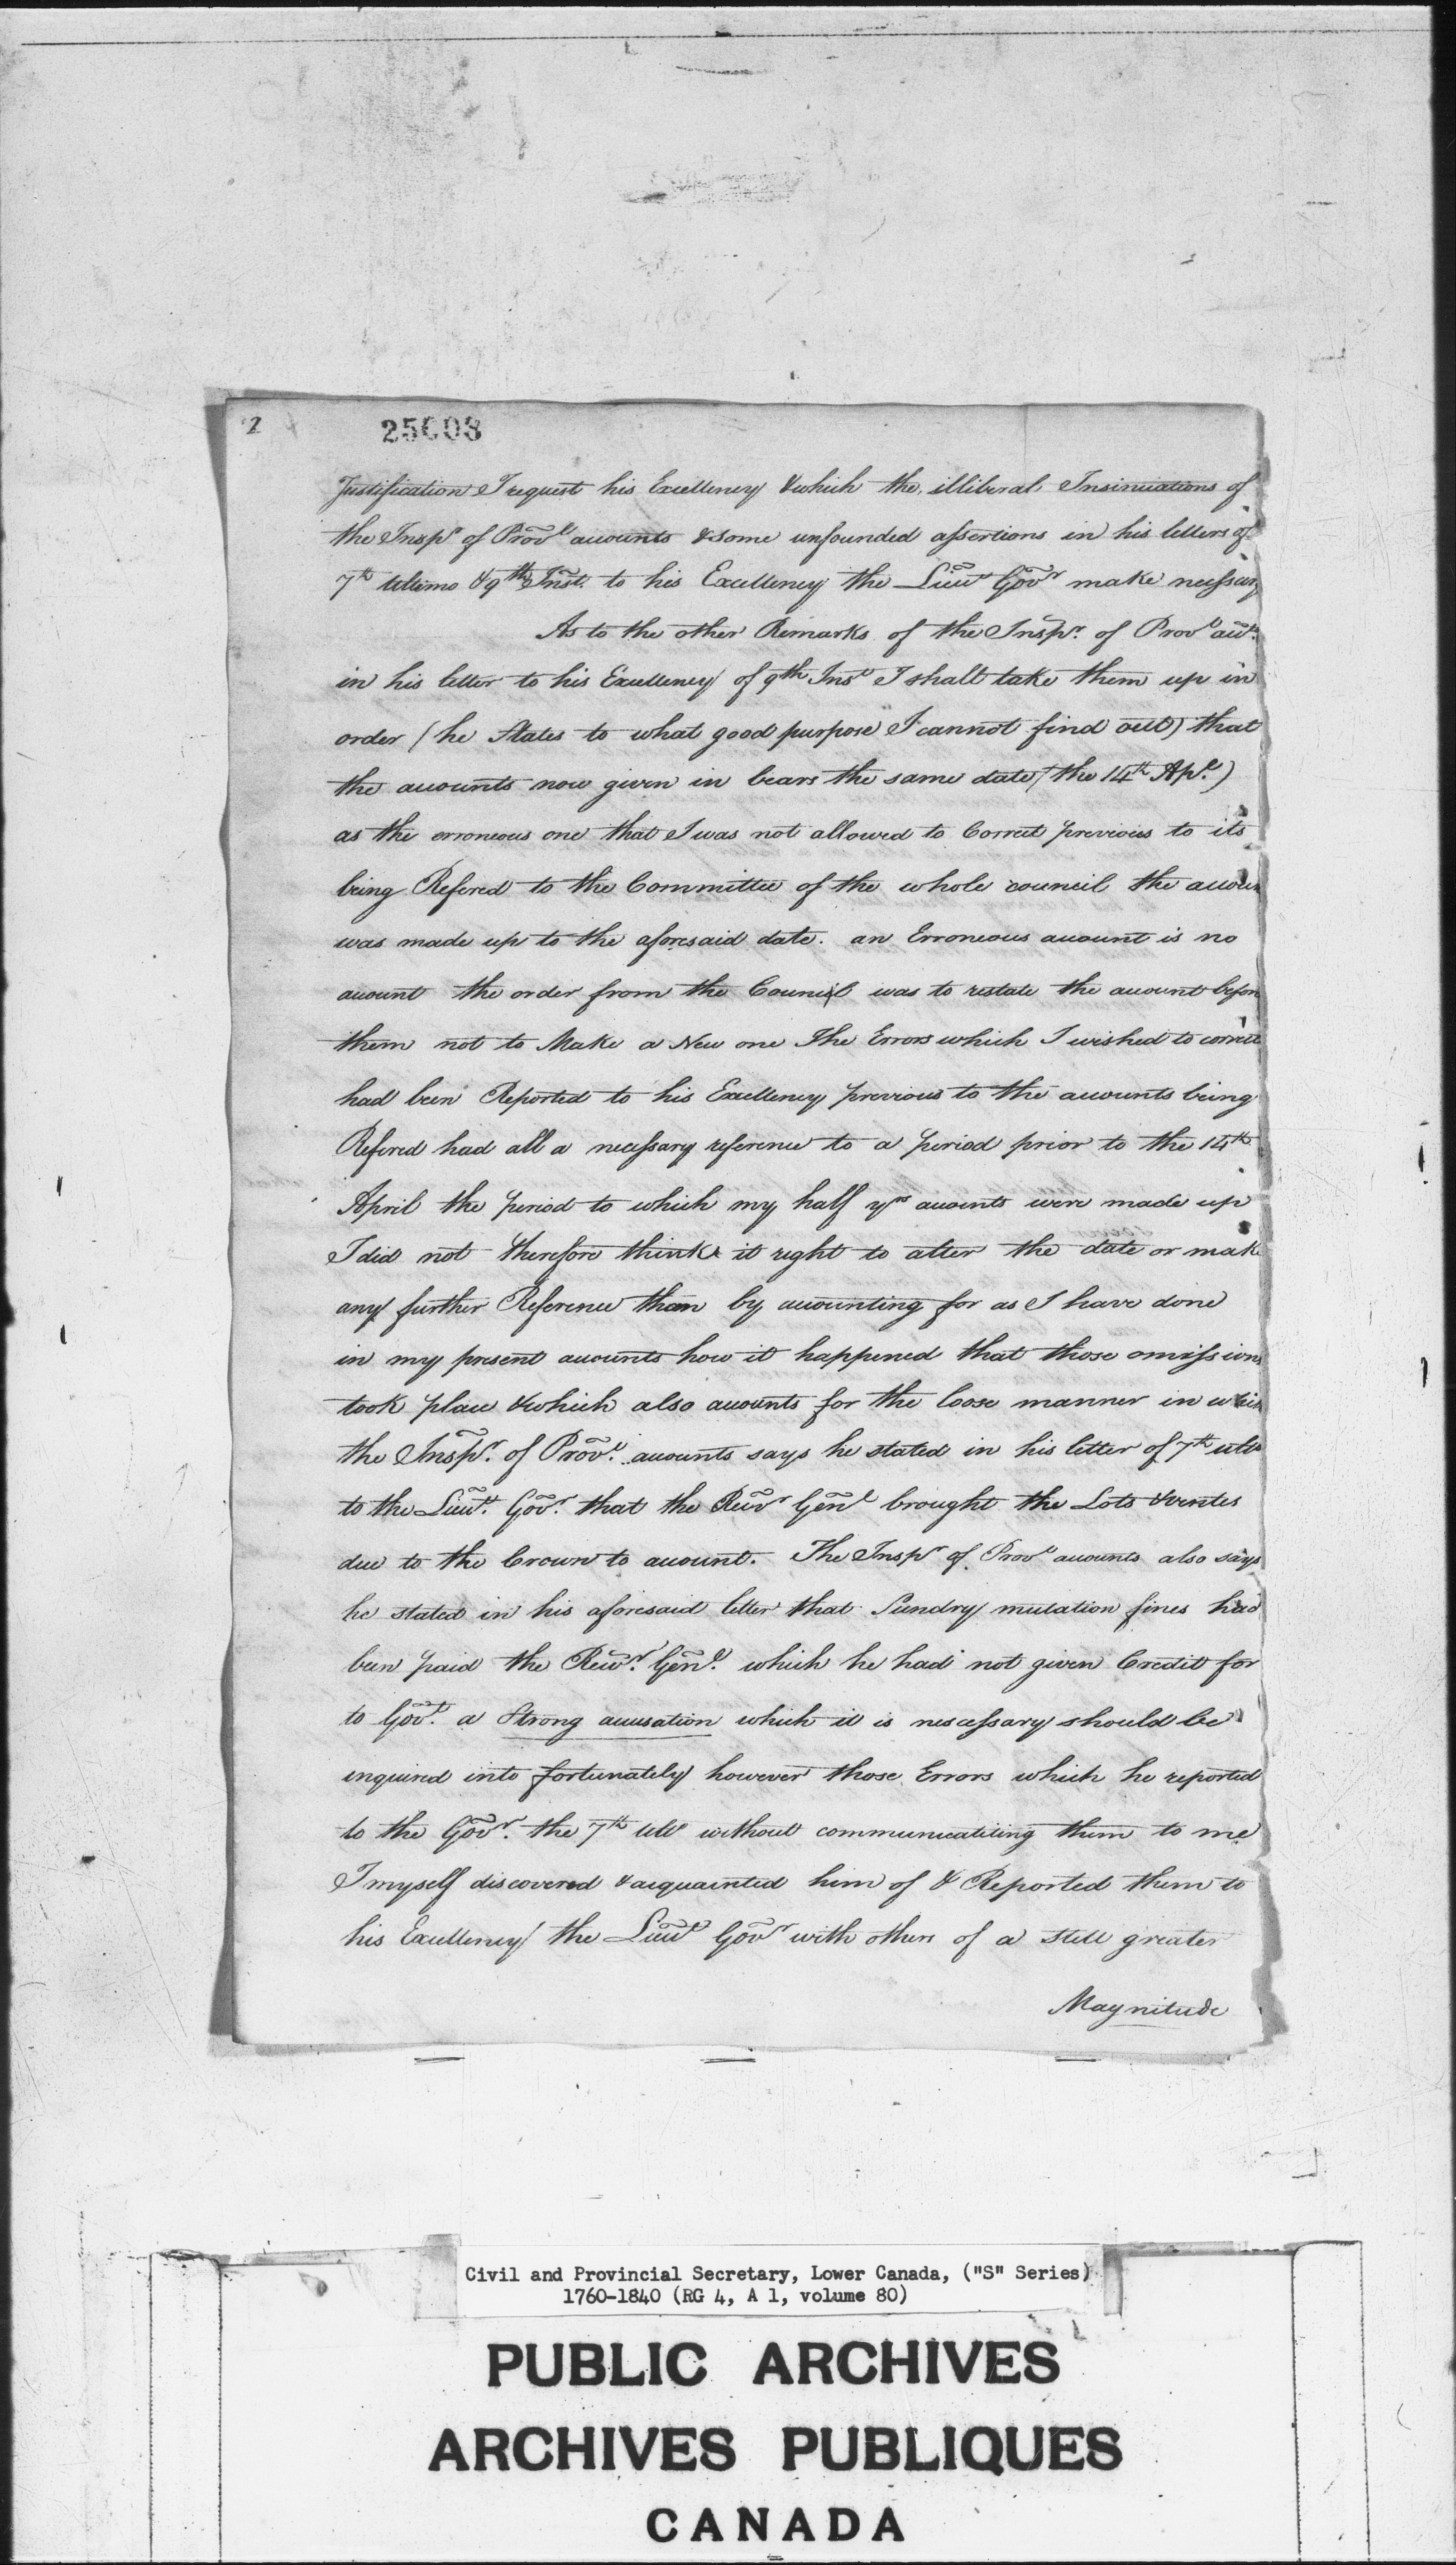 2
25608
Justification I request his Excellency & which the illiberal Insinuations of
the Inspr of Provl accounts & some unfounded assertions in his letters of
7th ultimo & 9th Inst. to his Excellency the Lieut Govr make necessary
As to the other Remarks of the Inspr. of Provl acts.
in his letter to his Excellency of 9th Inst I shall take them up in
order (he States to what good purpose I cannot find out) that
the accounts now given in bears the same date (the 14th Apl.)
as the erroneous one that I was not allowed to Correct previous to its
being Refered to the Committee of the whole council the accoun
was made up to the aforesaid date. an Erroneous account is no
account the order from the Council was to restate the account before
them not to Make a New one The Errors which I wished to correct
had been Reported to his Excellency previous to the accounts being
Refered had all a necessary reference to a period prior to the 14th
April the period to which my half yrs accounts were made up
I did not therefore think it right to alter the date or make
any further Reference than by accounting for as I have done
in my present accounts how it happened that those omissions
took place & which also accounts for the loose manner in which
the Inspr. of Provl. accounts says he stated in his letter of 7th ulto
to the Lieut. Govr. that the Recvr Genl brought the Lots & ventes
due to the Crown to account. The Inspr of Provl accounts also says
he stated in his aforesaid letter that Sundry mutation fines had
been paid the Recvr. Genl. which he had not given Credit for
to Govt. a Strong accusation which it is nescessary should be
enquired into fortunately however those Errors which he reported
to the Govr. the 7th ulto without communicatiing them to me
I myself discovered & acquainted him of & Reported them to
his Excellency the Lieut Govr with others of a still greater
Magnitude
Civil and Provincial Secretary, Lower Canada, ("S" Series)
1760-1840 (RG 4, A 1, volume 80)
PUBLIC ARCHIVES
ARCHIVES PUBLIQUES
CANADA